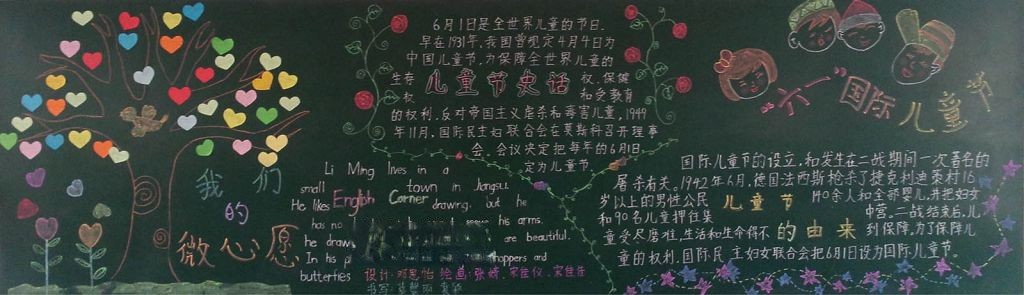 我们
的
微心愿
6月1日是全世界儿童的节日.
早在1931年,我国曾规定4月4日为
中国儿童节,为保障全世界儿童的
生存 儿童节史话 权,保健
权 和受教育
的权利,反对帝国主义虐杀和毒害儿童,1949
年11月,国际民主妇联合会在莫斯科召开理事
会,会议决定把每年的6月1日.
定为儿童节.
Li Ming lives in a
small town in Jiangsu.
English Corner
He likes drawing, but he
has no his arms.
he draws are beautiful.
In his hoppers and
butterflies
设计:邓思怡 绘道:张婷,宋佳仪,宋佳乐
书写:
"六一"国际儿童节
国际儿童节的设立,和发生在二战期间一次著名的
屠杀有关。1942年6月,德国法西斯枪杀了捷克利迪策村16
岁以上的男性公民 儿童节 140余人和全部婴儿,并把妇女
和90名儿童押往集 中营。二战结束后,儿
童受尽磨难,生活和生命得不 的由来 到保障,为了保障儿
童的权利,国际民主妇女联合会把6月1日设为国际儿童节。